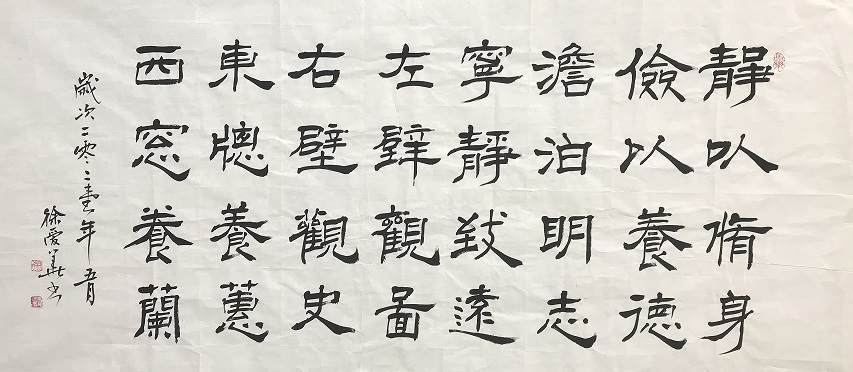 靜以脩身
儉以養德
澹泊明志
寧靜致遠
左壁觀圖
右壁觀史
東窗養蕙
西窗養蘭
歲次二零二壹年五月
徐愛華书